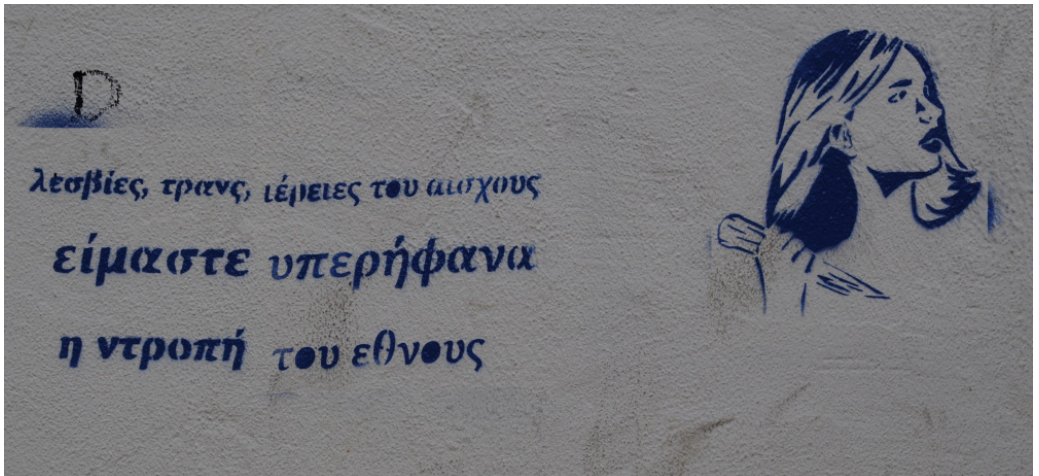 D
λεσβίες, τρανς, ιέρειες του αισχους
είμαστε υπερήφανα
η ντροπή του εθνους